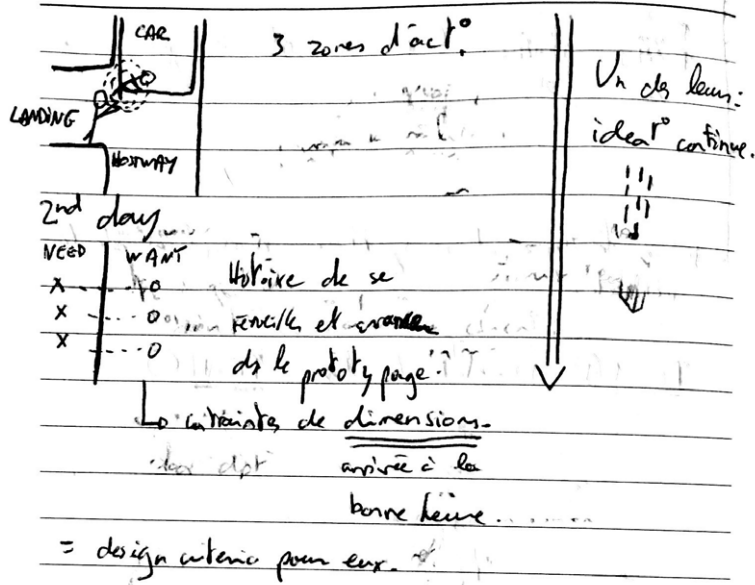 CAR
3 zones d'act°.
LANDING
HOISTWAY
Un de leurs:
ideat° continue.
2nd day
NEED WANT
X ---- O
X ---- O
X ---- O
Histoire de se
réveiller et
ds le prototypage.
↳ contraintes de dimensions.
arrivée à la
bonne heure.
= design criteria pour eux.